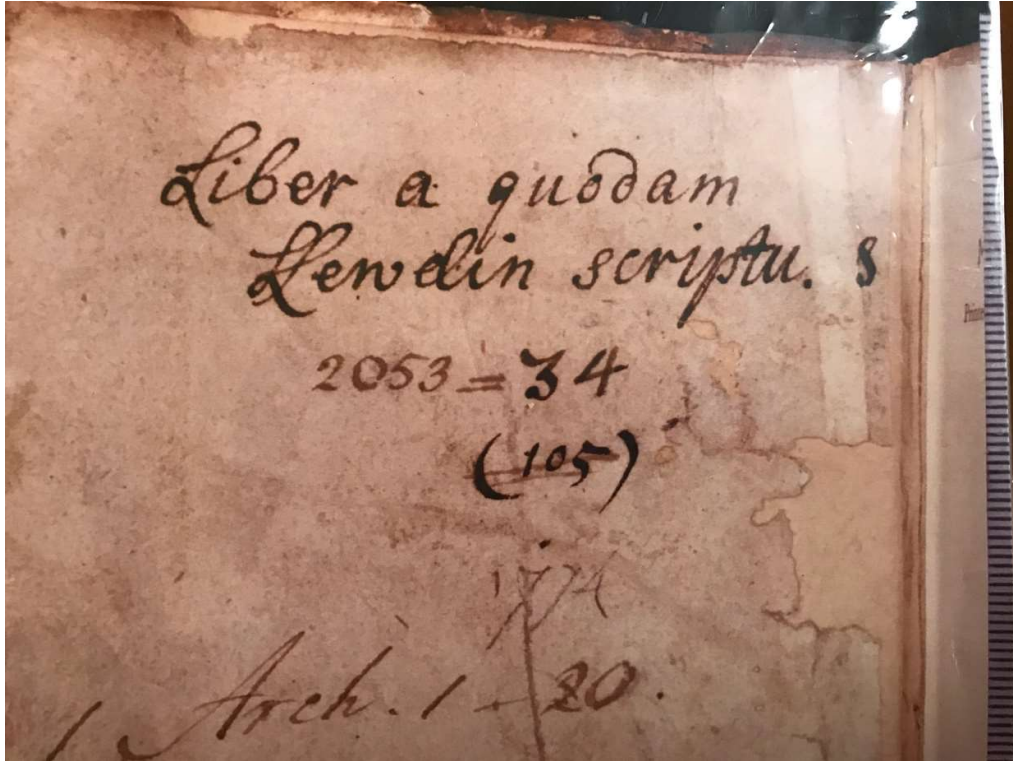 Liber a quodam
Llewelin scriptu. 8
2053 = 34
(105)
Arch. 1 - 20.